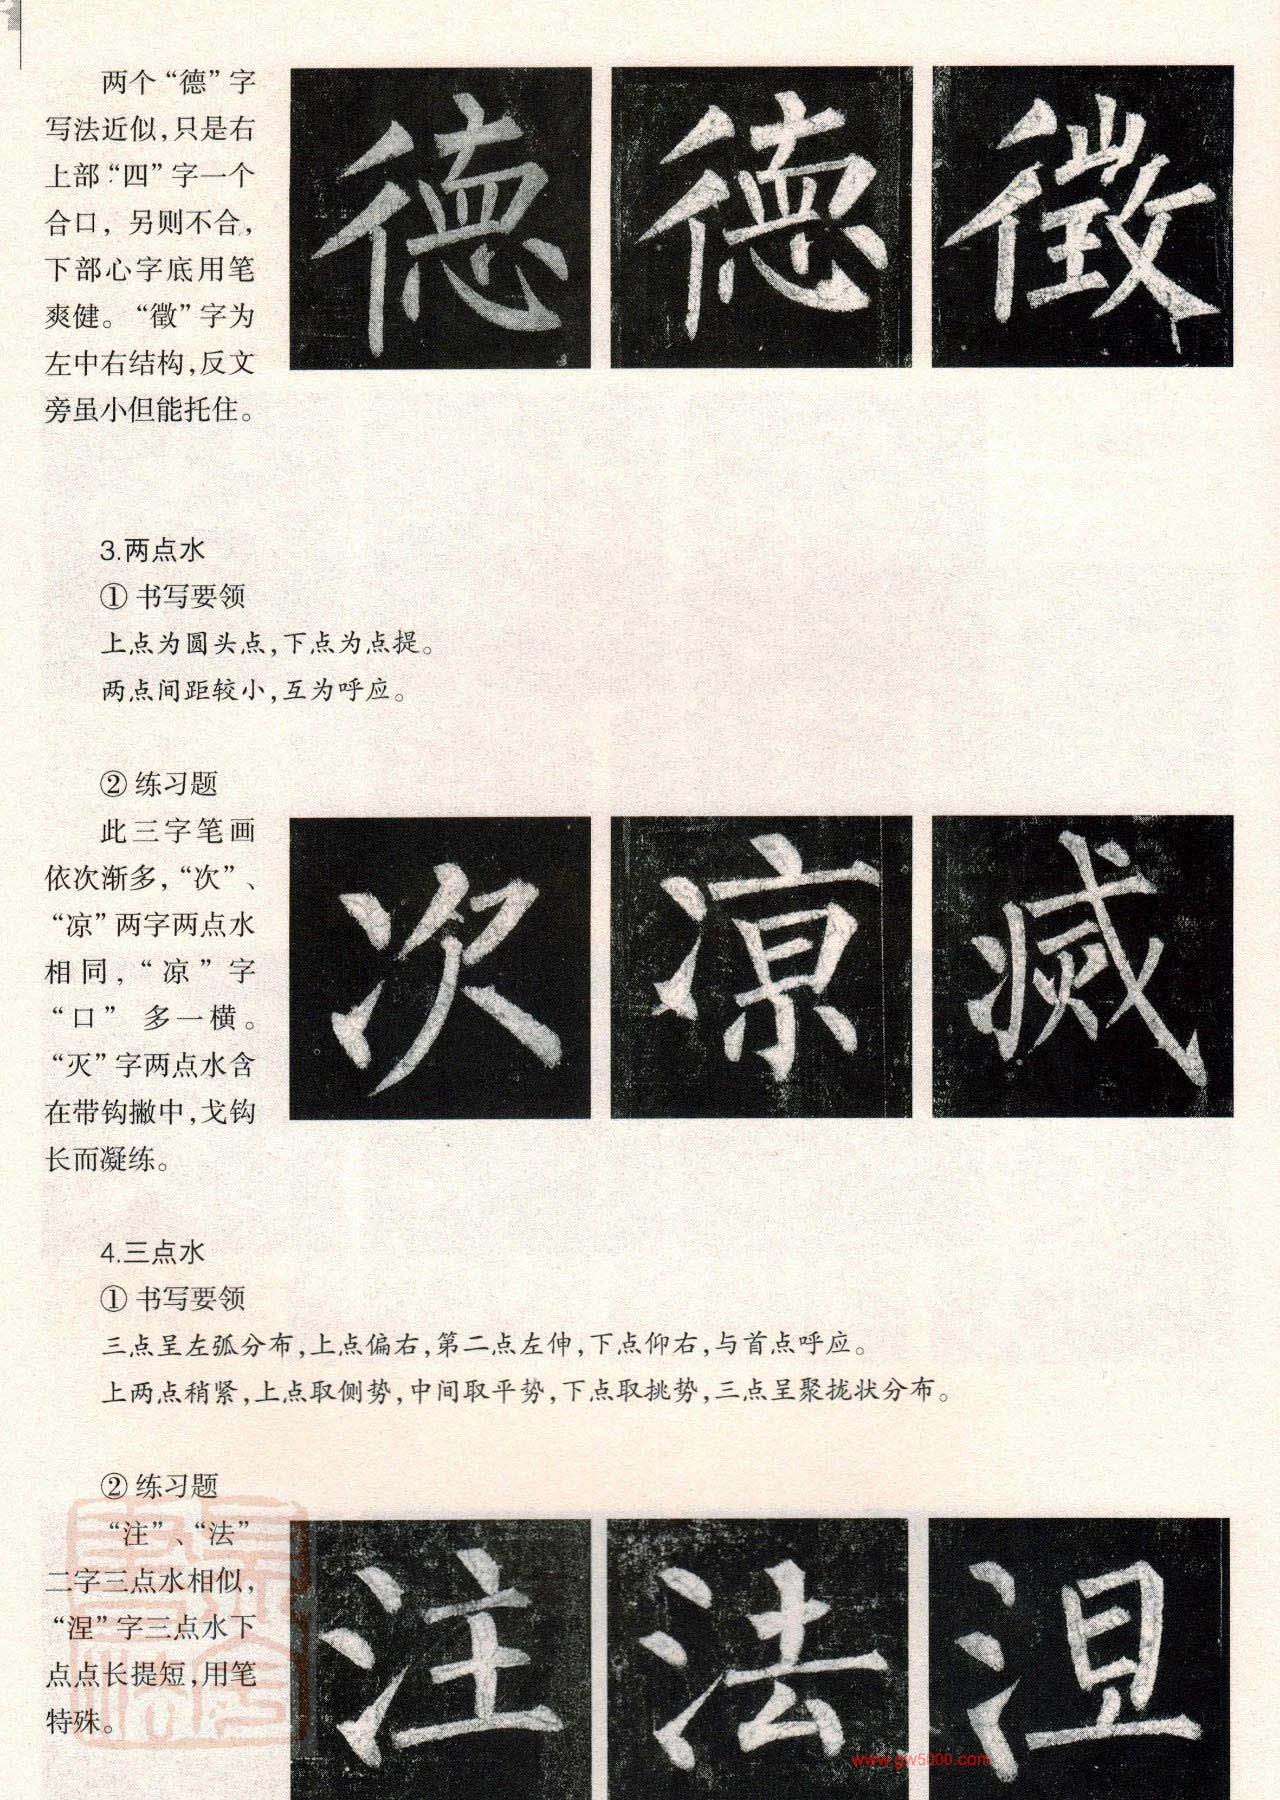 两个“德”字
写法近似，只是右
上部“四”字一个
合口，另则不合，
下部心字底用笔
爽健。“徵”字为
左中右结构，反文
旁虽小但能托住。
德 德 徵
3.两点水
① 书写要领
上点为圆头点，下点为点提。
两点间距较小，互为呼应。
② 练习题
此三字笔画
依次渐多，“次”、
“凉”两字两点水
相同，“凉”字
“口” 多一横。
“灭”字两点水含
在带钩撇中，戈钩
长而凝练。
次 凉 滅
4.三点水
① 书写要领
三点呈左弧分布，上点偏右，第二点左伸，下点仰右，与首点呼应。
上两点稍紧，上点取侧势，中间取平势，下点取挑势，三点呈聚拢状分布。
② 练习题
“注”、“法”
二字三点水相似，
“涅”字三点水下
点点长提短，用笔
特殊。
注 法
www.gw5000.com